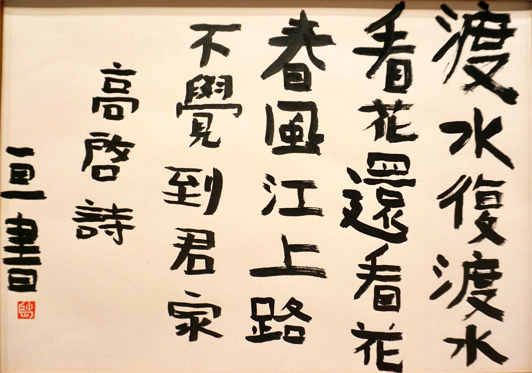 渡水復渡水
看花還看花
春風江上路
不覺到君家
高啓詩
一亘書